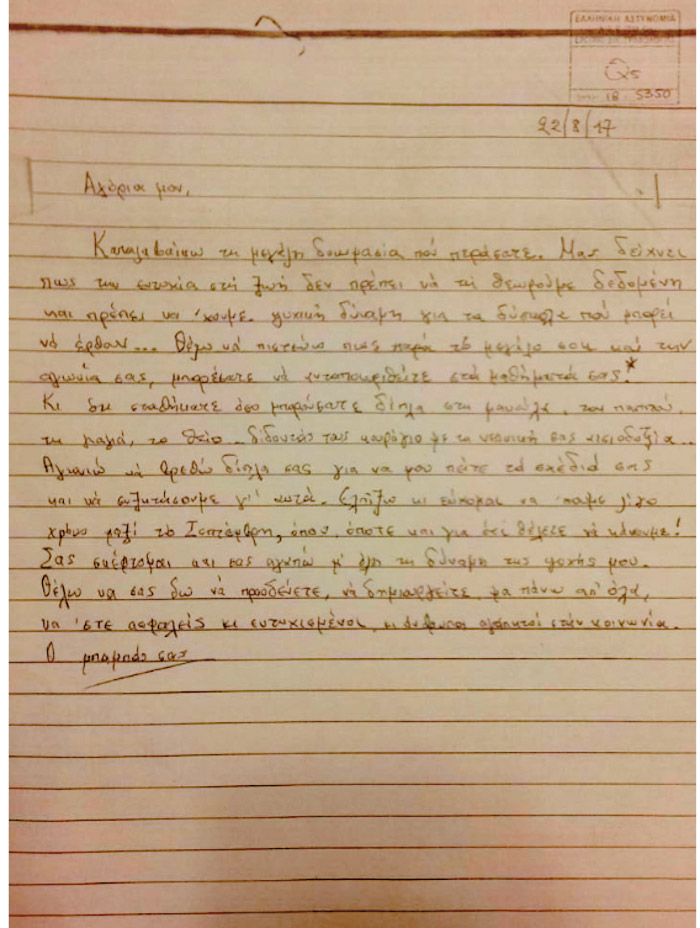 ΕΛΛΗΝΙΚΗ ΑΣΤΥΝΟΜΙΑ
Q5
18 5350
22/8/17
Αγόρια μου,
Καταλαβαίνω τη μεγάλη δοκιμασία πού περάσατε. Μας δείχνει
πως την ευτυχία στή ζωή δεν πρέπει νά τή θεωρούμε δεδομένη
και πρέπει να 'χουμε ψυχική δύναμη για τα δύσκολα πού μπορεί
νά έρθουν... Θέλω νά πιστεύω πως παρά τό μεγάλο σοκ καί την
αγωνία σας, μπορέσατε νά ανταποκριθείτε στά μαθήματά σας.*
Κι ότι σταθήκατε όσο μπορούσατε δίπλα στη μανούλα, τον παππού,
τη γιαγιά, το θείο... δίδοντάς τους κουράγιο με τη νεανική σας αισιοδοξία...
Αγωνιώ νά βρεθώ δίπλα σας για να μου πείτε τά σχέδιά σας
και νά συζητήσουμε γι' αυτά. Ελπίζω κι εύχομαι να 'παμε λίγο
χρόνο μαζί τό Σεπτέμβρη, όπου, όποτε και για ότι θέλετε νά κάνουμε!
Σας σκέφτομαι και σας αγαπώ μ' όλη τη δύναμη της ψυχής μου.
Θέλω να σας δω νά προοδεύετε, νά δημιουργείτε, μα πάνω απ' όλα,
να 'στε ασφαλείς κι ευτυχισμένοι, κι άνθρωποι αγαπητοί στήν κοινωνία.
Ο μπαμπάς σας